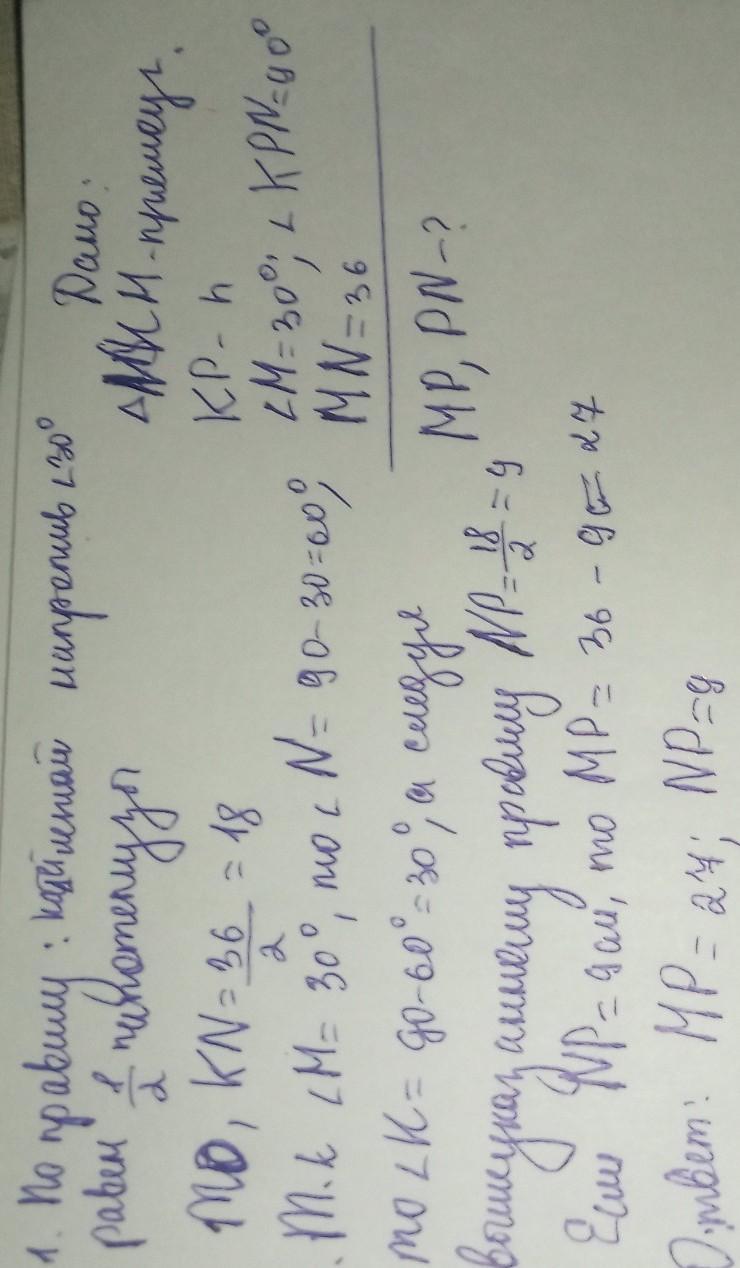 Дано:
Δ МКН - прямоуг.
KP - h
∠M = 30°, ∠KPN = 90°
MN = 36
MP, PN - ?
1. По правилу: катет напротив ∠30°
равен 1/2 гипотенузы
то, KN = 36/2 = 18
. т.к ∠M = 30°, то ∠N = 90 - 30 = 60°,
то ∠K = 90 - 60° = 30°, а следуя
вышеуказанному правилу NP = 18/2 = 9
Если NP = 9 см, то MP = 36 - 9 = 27
Ответ: MP = 27; NP = 9